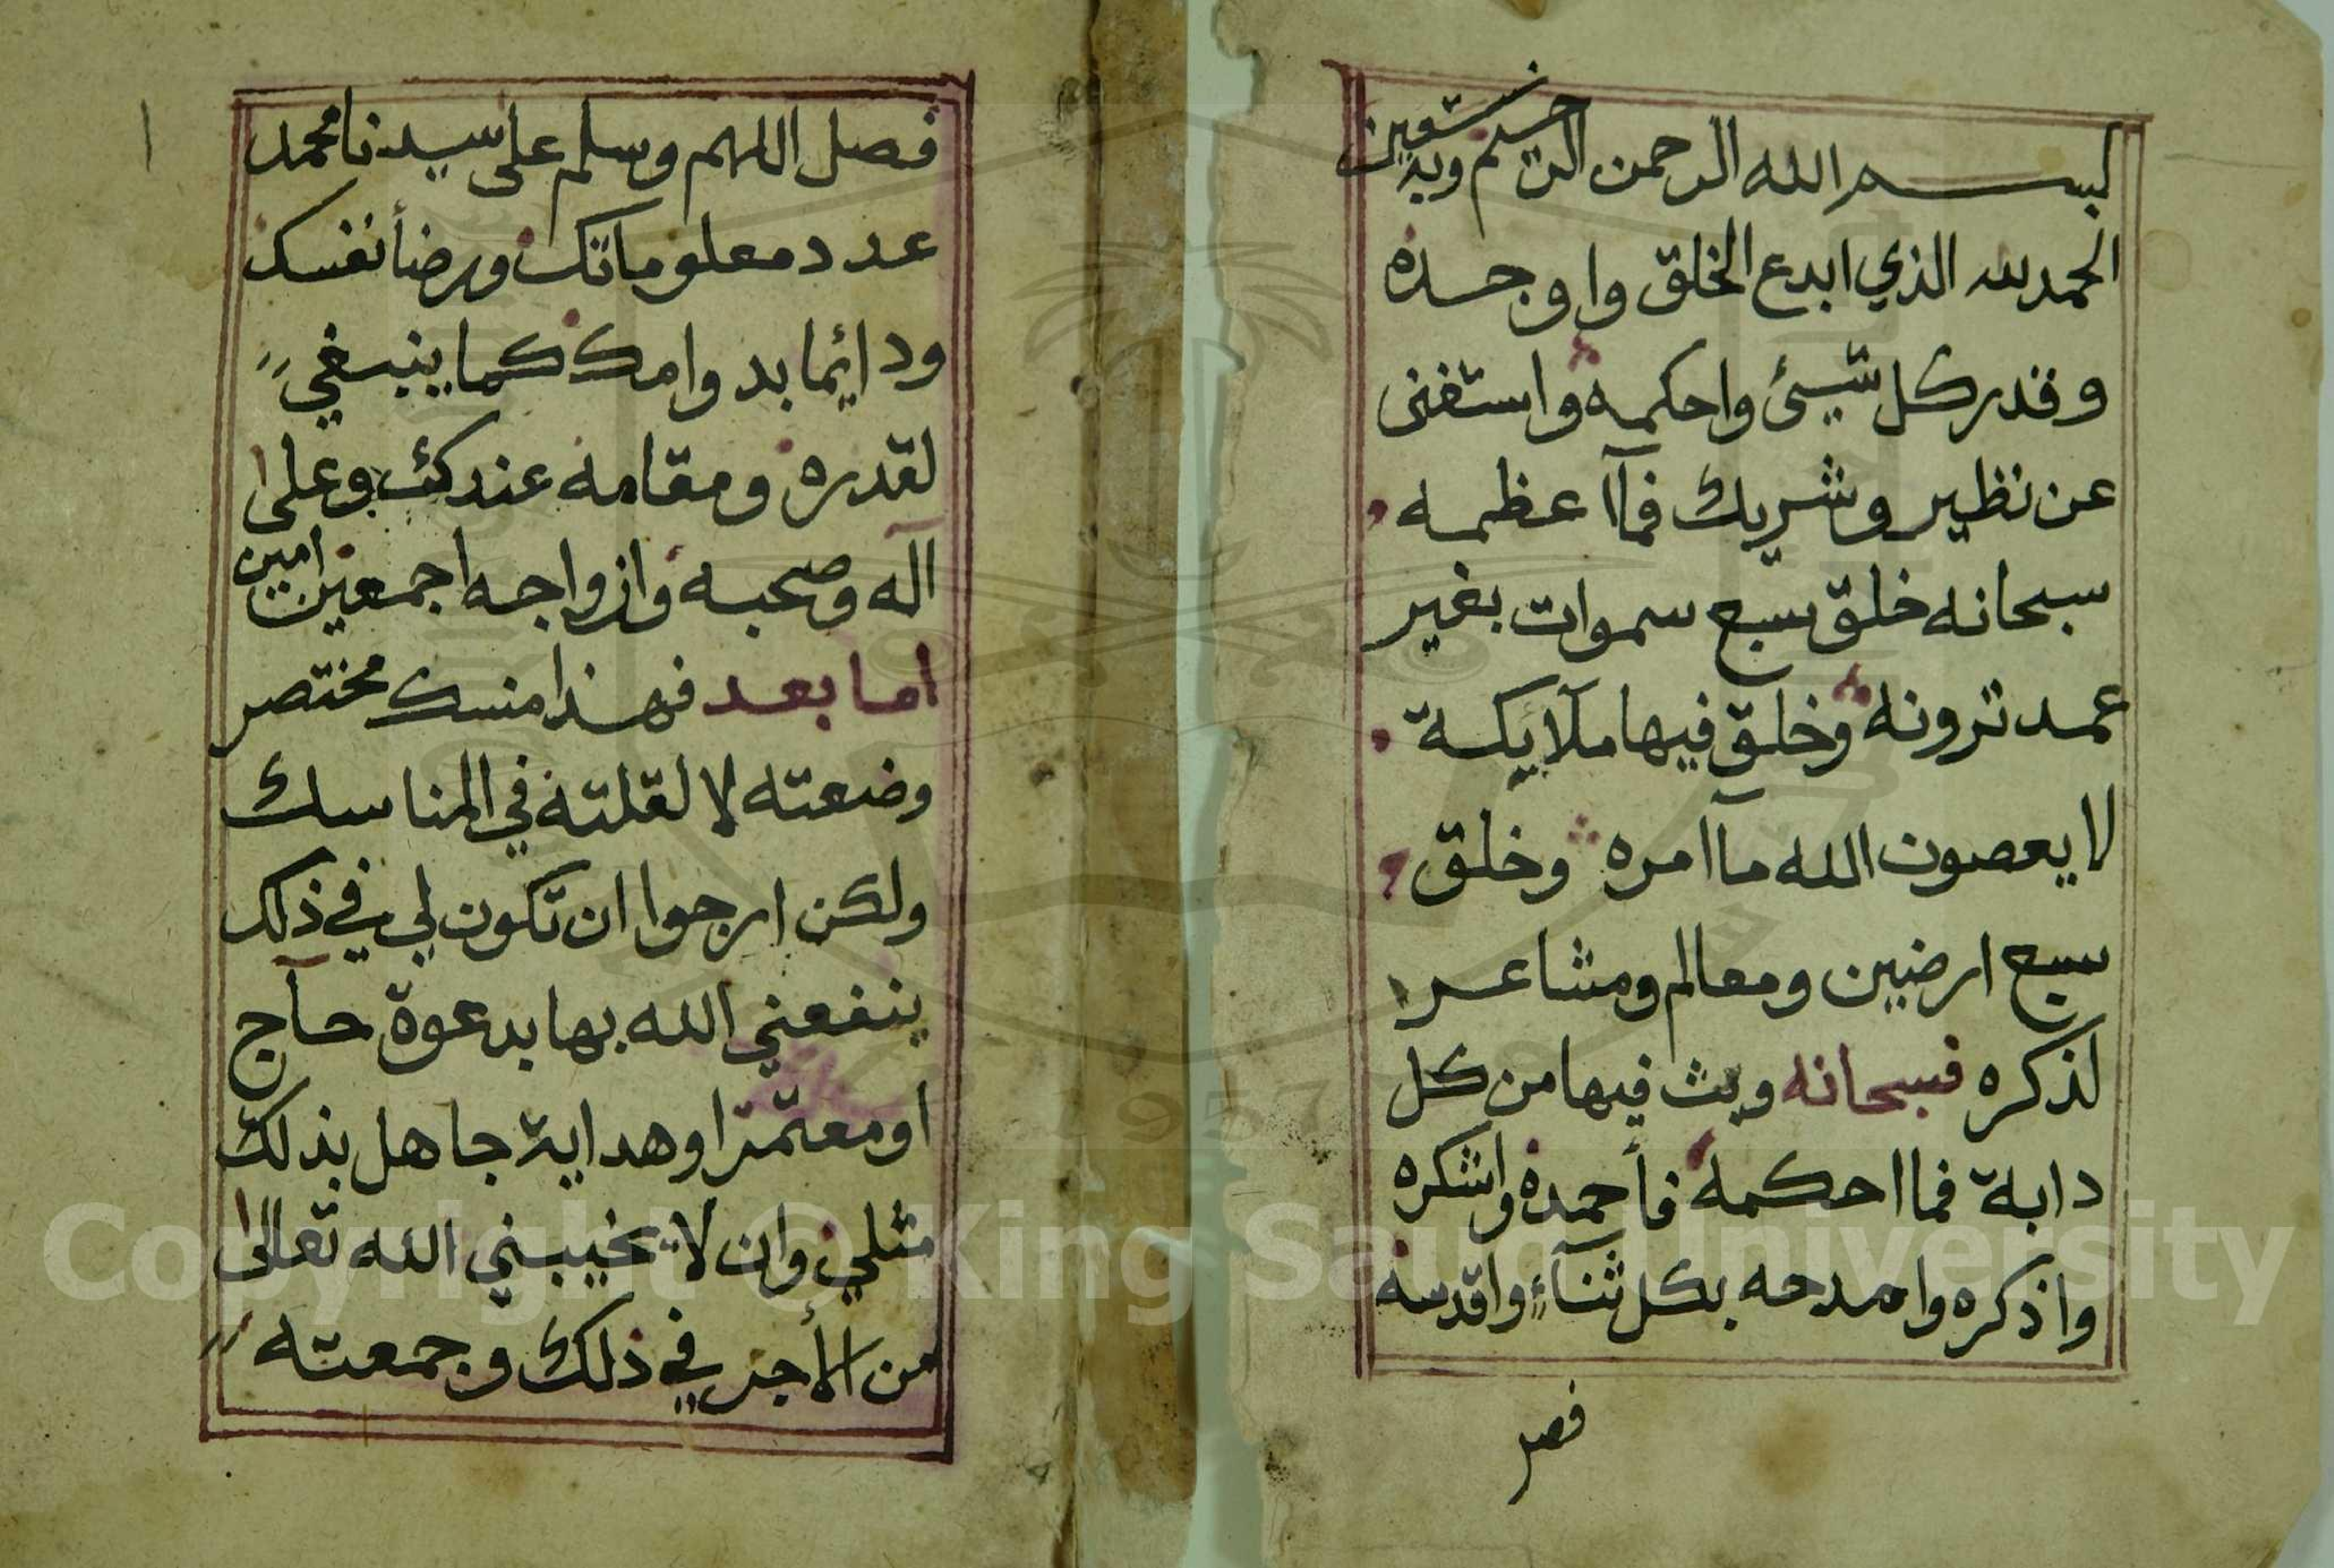 بسم الله الرحمن الرحيم وبه نستعين
الحمد لله الذي ابدع الخلق واوجده
وقدر كل شيئ واحكمه واستغنى
عن نظير وشريك فمآا عظمه
سبحانه خلق سبع سموات بغير
عمد ترونه وخلق فيها ملآئيكة
لا يعصون الله مآ امره وخلق
سبع ارضين ومعالم ومشاعر
لذكره فسبحانه وبث فيها من كل
دابة فما احكمه فأحمده واشكره
واذكره وامدحه بكل ثنآءٍ واقدسه
فصل
١
فصل اللهم وسلم على سيدنا محمد
عدد معلوماتك ورضأ نفسك
ودائما بدوامك كما ينبغي
لقدره ومقامه عندك وعلى
آله وصحبه وازواجه اجمعين امين
اما بعد فهذا منسك مختصر
وضعته لا لقلته في المناسك
ولكن ارجوا ان تكون لي في ذلك
ينفعني الله بها بدعوة حآج
او معتمر او هداية جاهل بذلك
مثلي وان لا يخيبني الله تعالى
من الأجر في ذلك وجمعته
Copyright © King Saud University
1957